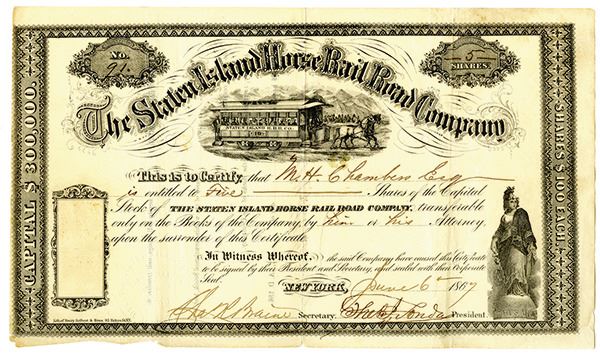 NO.
91.
5
SHARES.
The Staten Island Horse Rail Road Company
STATEN ISLAND H.R.R. CO.
CAPITAL $300,000.
SHARES $100 EACH.
This is to Certify, that M.H. Chambers Esq
is entitled to Five Shares of the Capital
Stock of THE STATEN ISLAND HORSE RAIL ROAD COMPANY, transferable
only on the Books of the Company, by him or his Attorney,
upon the surrender of this Certificate.
In Witness Whereof, the said Company have caused this Certificate
to be signed by their President and Secretary, and sealed with their Corporate
Seal.
NEW YORK, June 6 1867
Secretary.
President.